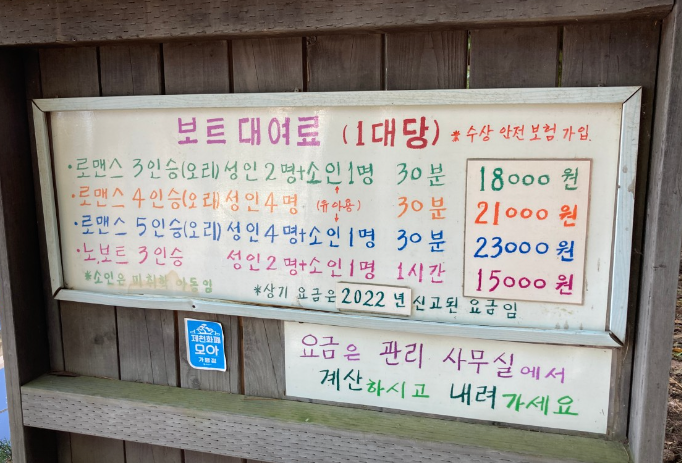 보트대여료 (1대당) *수상 안전 보험 가입.
·로맨스 3인승(오리) 성인2명+소인1명 30분 18000원
·로맨스 4인승(오리) 성인4명. (유아용) 30분 21000원
·로맨스 5인승(오리) 성인4명+소인1명 30분 23000원
·노.보트 3인승 성인2명+소인1명 1시간 15000원
*소인은 미취학 아동임
*상기 요금은 2022년 신고된 요금임
제천화폐
모아
가맹점
요금은 관리 사무실에서
계산하시고 내려가세요